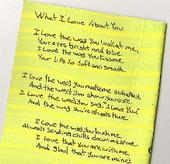 What I Love About You
I love the way you look at me,
Your eyes so bright and blue.
I love the way you kiss me,
Your lips so soft and smooth.
I love the way you make me so happy,
And the ways you show you care.
I love the way you say, "I Love You,"
And the way you're always there.
I love the way you touch me,
Always sending chills down my spine.
I love that you are with me,
And glad that you are mine.